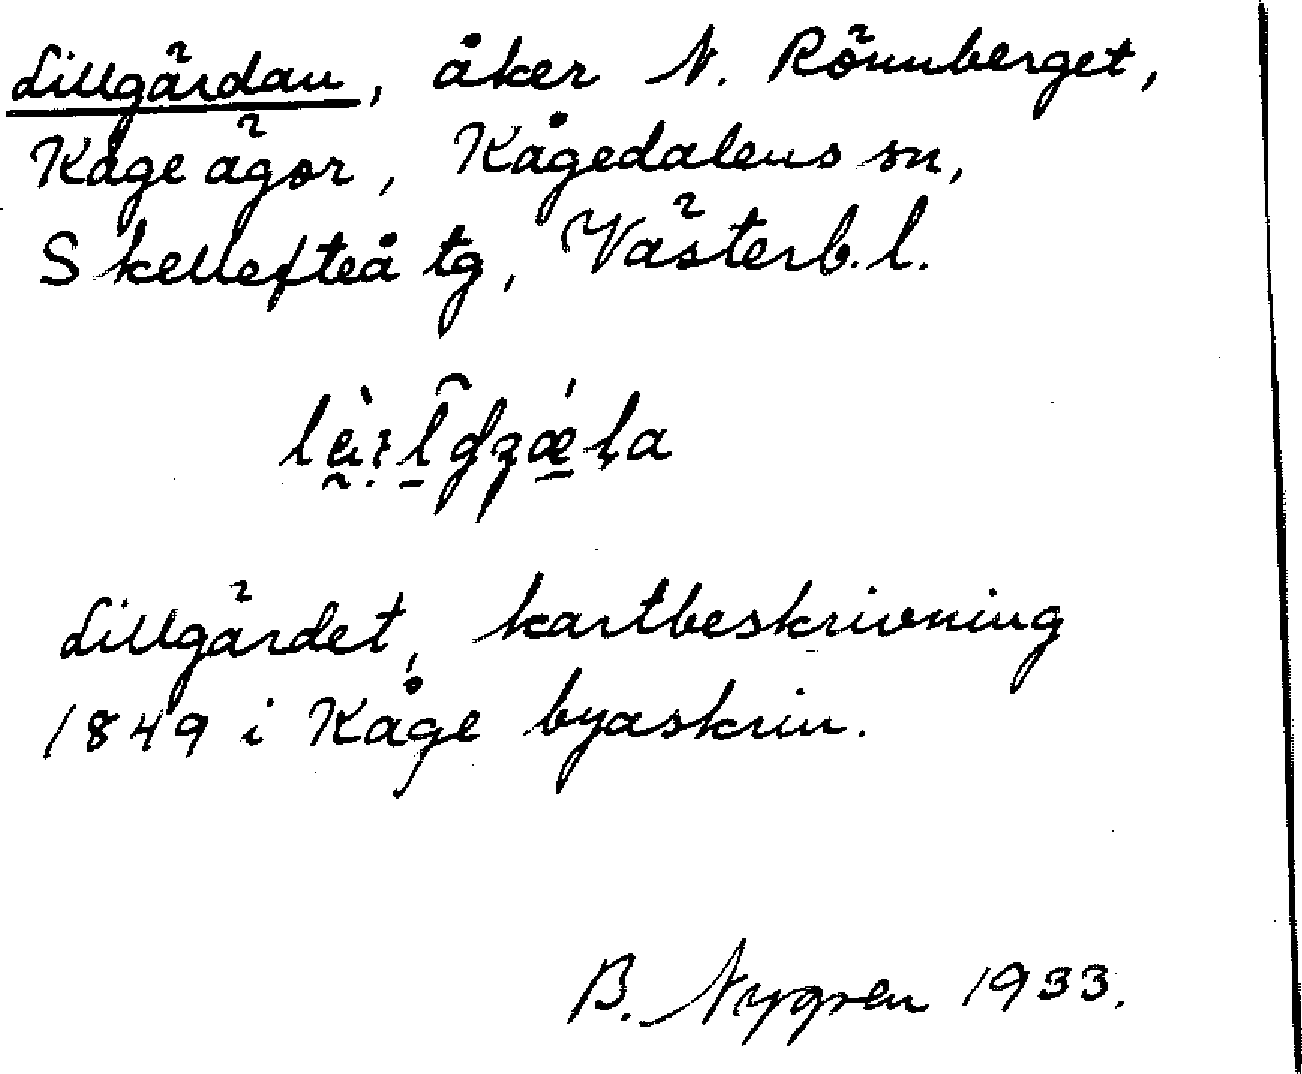 Lillgärdan, åker N. Rönnberget,
Kåge ägor, Kågedalens sn,
Skellefteå tg, Västerb. l.
Lillgärdet, kartbeskrivning
1849 i Kåge byaskrin.
B. Nygren 1933.